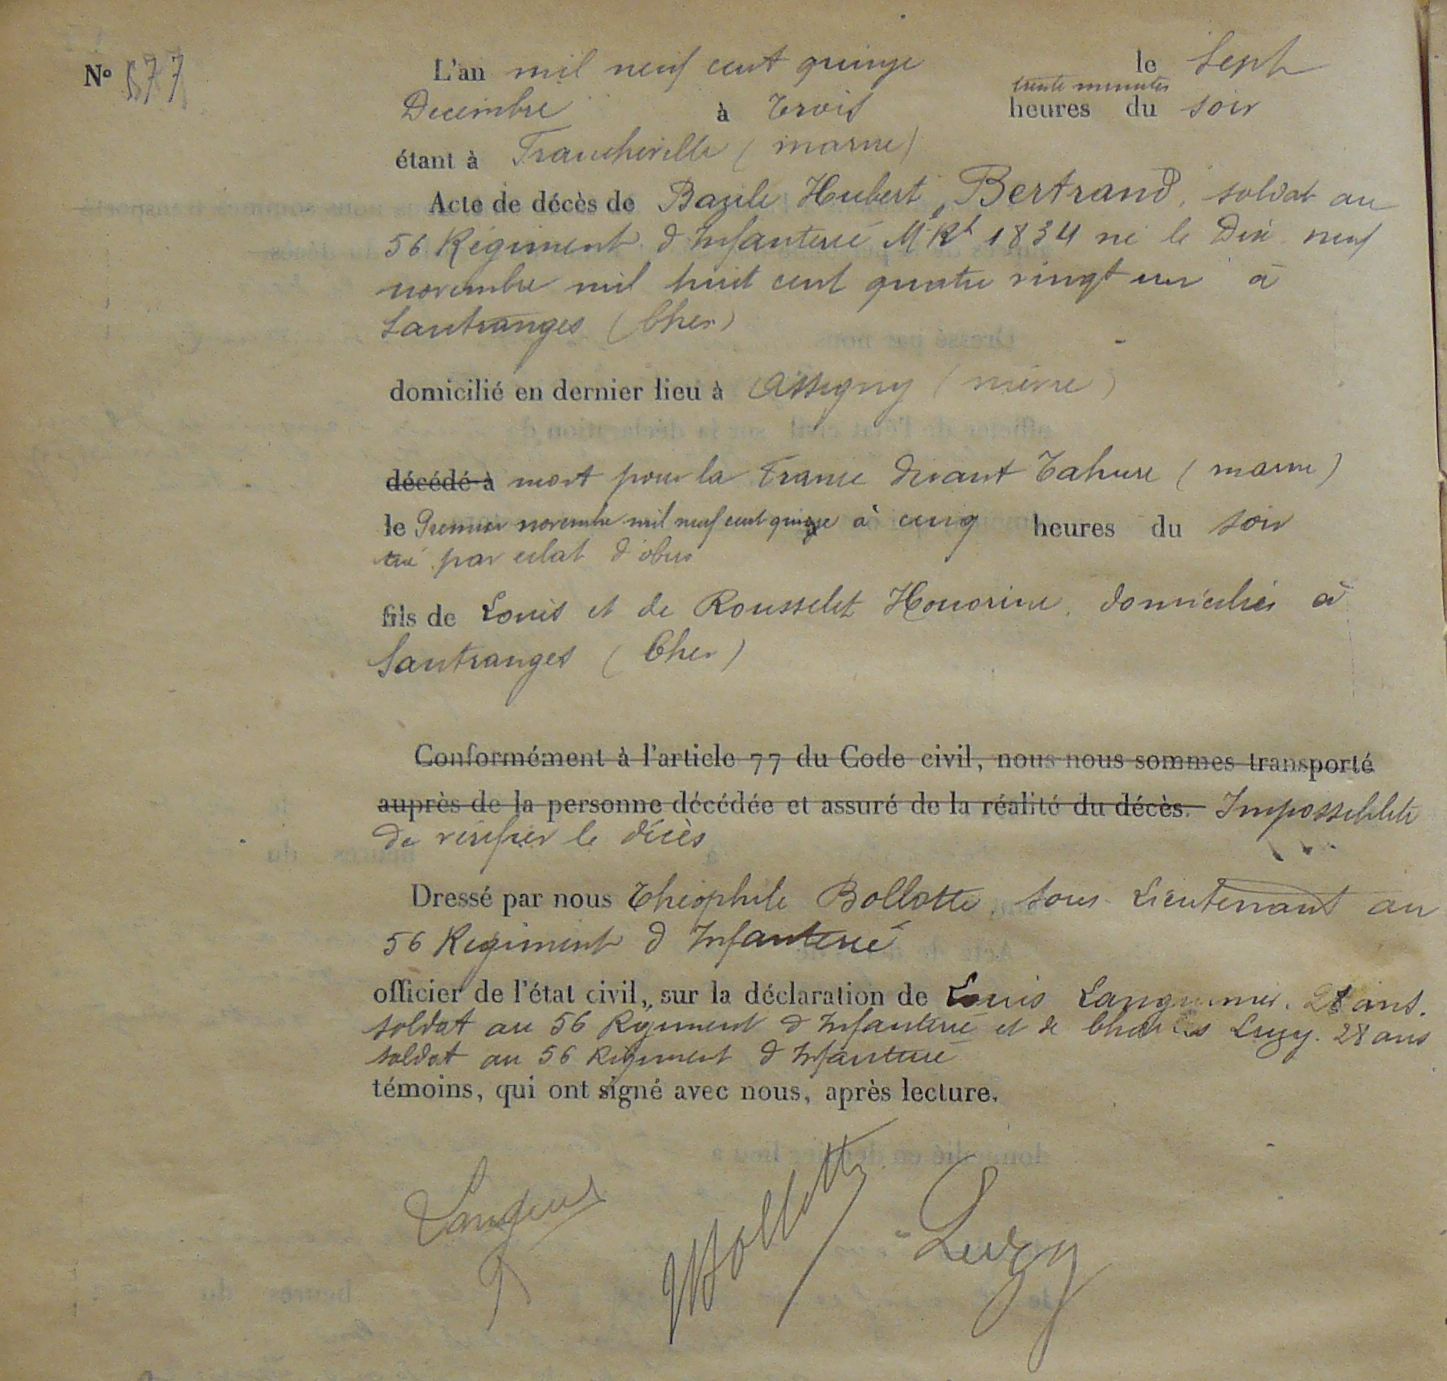 N° 677
L'an mil neuf cent quinze le Sept
trente minutes
Decembre à Trois heures du soir
étant à Francheville (marne)
Acte de décès de Bazile Hubert, Bertrand, soldat au
56 Régiment d'Infanterie Mle Rt 1834 né le Dix neuf
novembre mil huit cent quatre vingt un à
Santranges (Cher)
domicilié en dernier lieu à Assigny (même)
décédé à mort pour la France devant Tahure (marne)
le Premier novembre mil neuf cent quinze à cinq heures du soir
tué par eclat d'obus
fils de Louis et de Rousselet Honorine, domiciliés à
Santranges (Cher)
Conformément à l'article 77 du Code civil, nous nous sommes transporté
auprès de la personne décédée et assuré de la réalité du décès. Impossibilité
de vérifier le décès
Dressé par nous Théophile Bollotte, sous Lieutenant au
56 Régiment d'Infanterie
officier de l'état civil, sur la déclaration de Louis 28 ans.
soldat au 56 Régiment d'Infanterie et de Charles Luzy. 28 ans
soldat au 56 Régiment d'Infanterie
témoins, qui ont signé avec nous, après lecture.
Bollotte Luzy